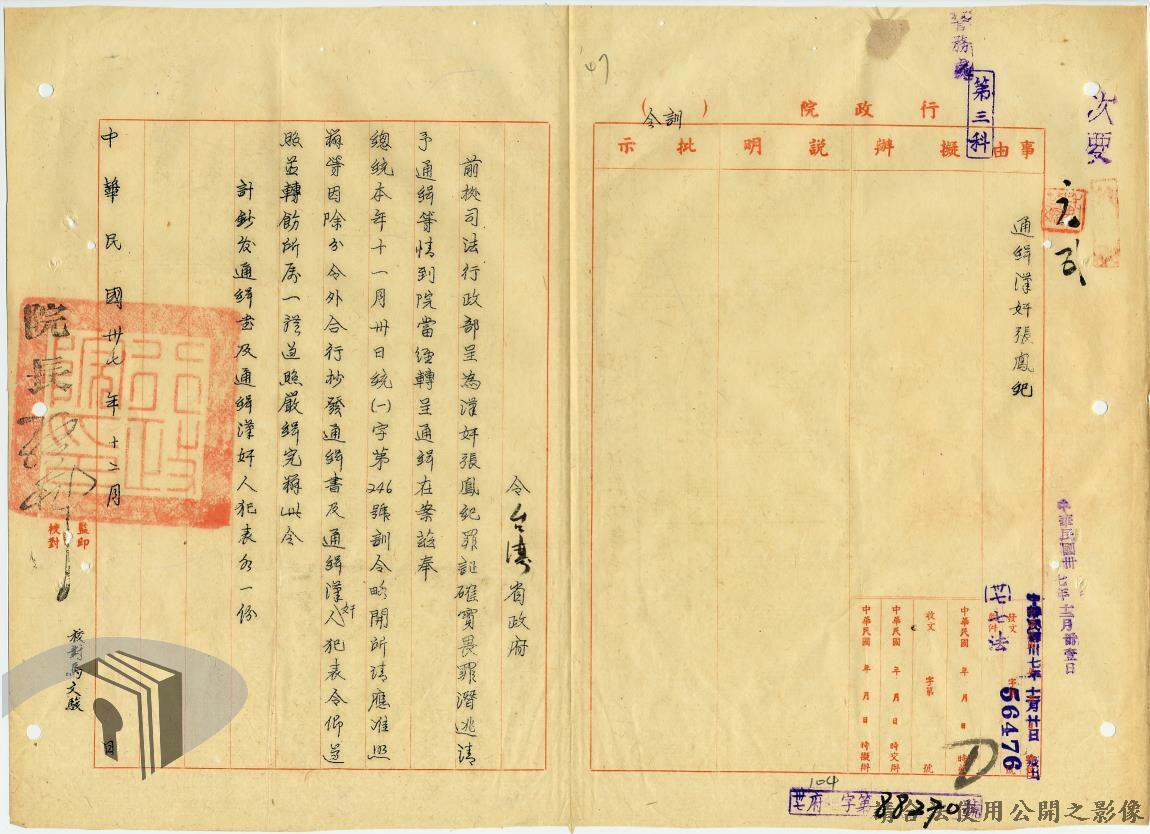 次要
警務處
第三科
行政院（訓令）
事由
擬辦
說明
批示
通緝漢奸張鳳紀
中華民國卅七年十二月
廿一日
發文
卅七法
字第56476號
中華民國 年 月 日
收文 字第 號
中華民國 年 月 日 時交辦
中華民國 年 月 日 時擬辦
104
府 字第88270號
D
47
令台灣省政府
前據司法行政部呈為漢奸張鳳紀罪証確實畏罪潛逃請
予通緝等情到院當經轉呈通緝在案茲奉
總統本年十一月卅日統(一)字第246號訓令略開所請應准照
辦等因除分令外合行抄發通緝書及通緝漢奸人犯表令仰遵
照並轉飭所屬一體遵照嚴緝究辦此令
計鈔發通緝書及通緝漢奸人犯表各一份
中華民國卅七年十二月 日
院長
監印
校對
校對馬文駿
請合法使用公開之影像